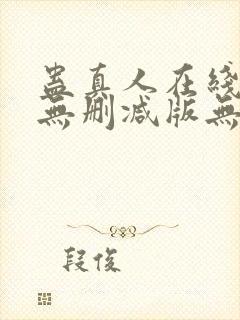 蛊真人在线
無删减版無
段俊